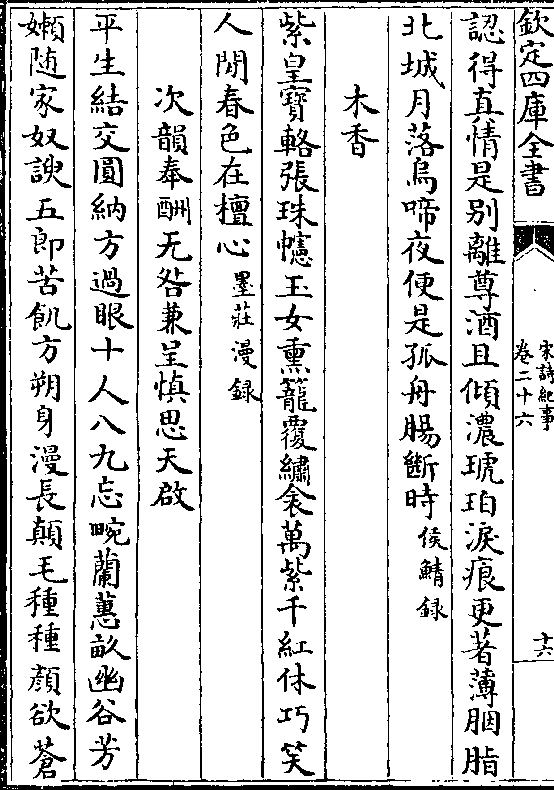 欽定四庫全書
宋詩紀事
卷二十六
十六
認得真情是别離尊酒且傾濃琥珀淚痕更著薄胭脂
北城月落烏啼夜便是孤舟腸斷時侯鯖録
木香
紫皇寶輅張珠幰玉女熏籠覆繡衾萬紫千紅休巧笑
人間春色在檀心墨莊漫録
次韻奉酬无咎兼呈慎思天啟
平生結交圓納方過眼十人八九忘畹蘭蕙畝幽谷芳
嬾随家奴諛五郎苦飢方朔身漫長顛毛種種顔欲蒼